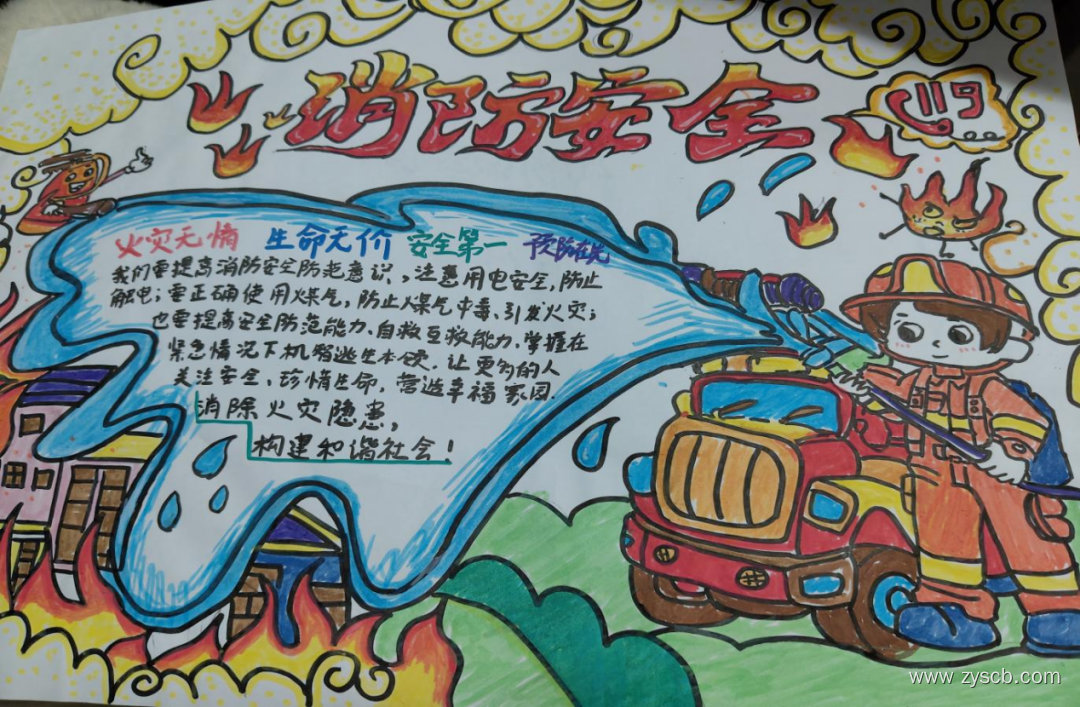 消防安全
119
火灾无情 生命无价 安全第一 预防在先
我们要提高消防安全防范意识，注意用电安全，防止
触电；要正确使用煤气，防止煤气中毒、引发火灾；
也要提高安全防范能力、自救互救能力、掌握在
紧急情况下机智逃生本领．让更多的人
关注安全、珍惜生命，营造幸福家园．
消除火灾隐患，
构建和谐社会！
www.zyscb.com